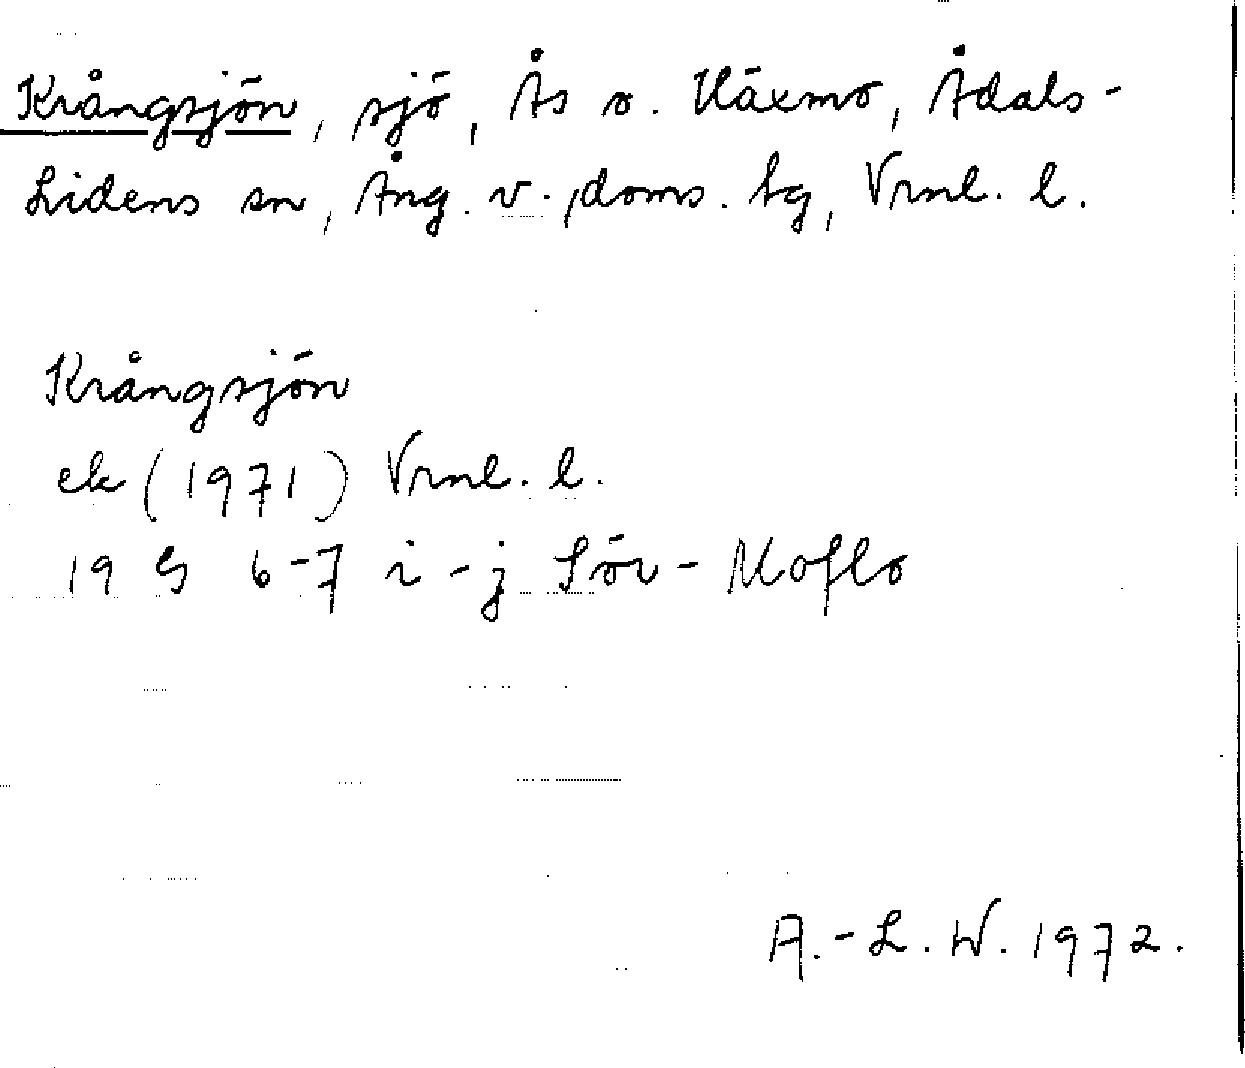 Krångsjön, sjö, Ås o. Häxmo, Ådals-
Lidens sn, Ång. v., doms. tg, Vrnl. l.
Krångsjön
ek (1971) Vrnl. l.
19 G 6-7 i-j Sör-Moflo
A.-L. W. 1972.